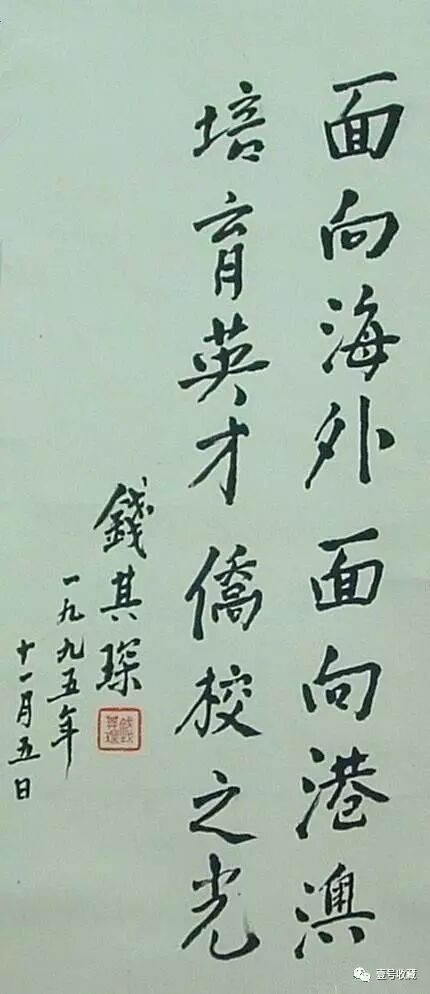 面向海外面向港澳
培育英才僑校之光
錢其琛
一九九五年
十一月五日
壹号收藏